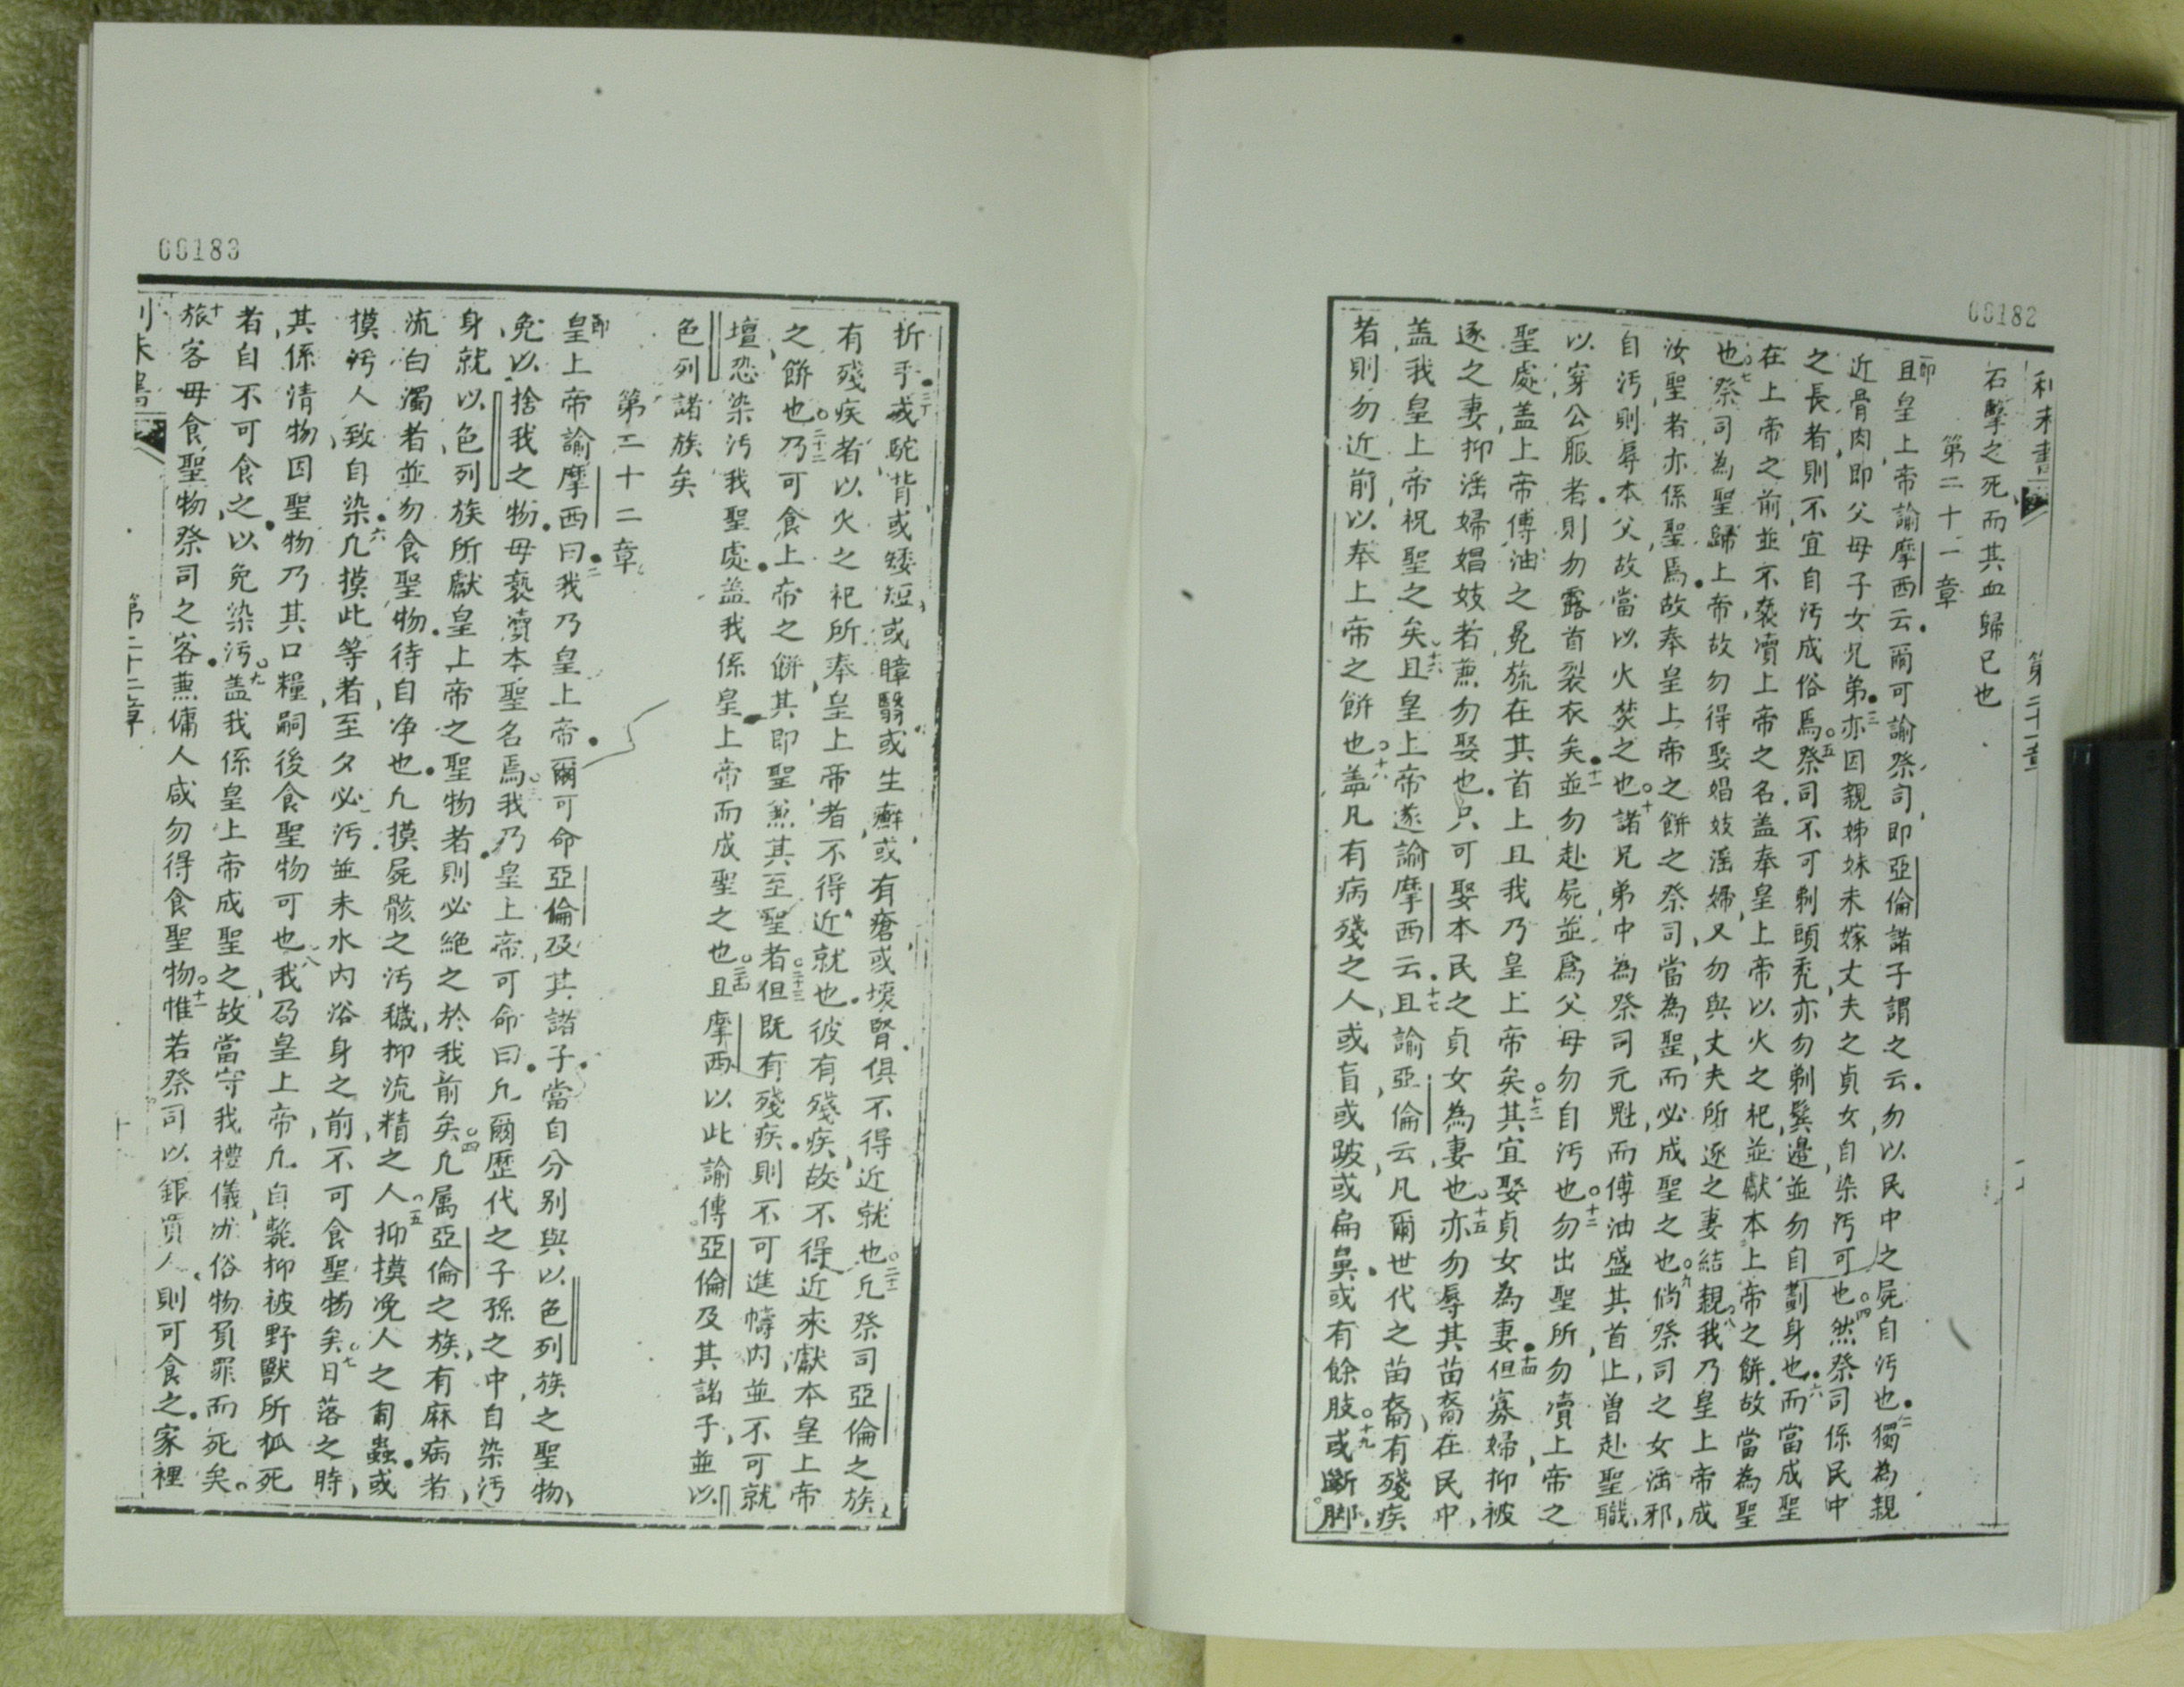 00182
利未書
第二十一章
石擊之死而其血歸已也
第二十一章
且皇上帝諭摩西云爾可諭祭司即亞倫諸子謂之云勿以民中之屍自汚也獨為親
近骨肉即父母子女兄弟亦因親姊妹未嫁丈夫之貞女自染汚可也然祭司係民中
之長者則不宜自汚成俗焉祭司不可剃頭禿亦勿剃鬓邊並勿自劃身也而當成聖
在上帝之前並不褻瀆上帝之名盖奉皇上帝以火之祀並獻本上帝之餅故當為聖
也祭司為聖歸上帝故勿得娶娼妓滛婦又勿與丈夫所逐之妻結親我乃皇上帝成
汝聖者亦係聖焉故奉皇上帝之餅之祭司當為聖而必成聖之也倘祭司之女滛邪
自汚則辱本父故當以火焚之也諸兄弟中為祭司元魁而傅油盛其首上曾赴聖職
以穿公服者則勿露首裂衣矣並勿赴屍並爲父母勿自汚也勿出聖所勿瀆上帝之
聖處盖上帝傅油之冕旒在其首上且我乃皇上帝矣其宜娶貞女為妻但寡婦抑被
逐之妻抑滛婦娼妓者兼勿娶也只可娶本民之貞女為妻也亦勿辱其苗裔在民中
盖我皇上帝祝聖之矣且皇上帝遂諭摩西云且諭亞倫云凡爾世代之苗裔有殘疾
者則勿近前以奉上帝之餅也盖凡有病殘之人或盲或跛或扁鼻或有餘肢或斷脚
00183
折手或駝背或矮短或瞕翳或生癬或有瘡或壞腎俱不得近就也凢祭司亞倫之族
有殘疾者以火之祀所奉皇上帝者不得近就也彼有殘疾故不得近來獻本皇上帝
之餅也乃可食上帝之餅其即聖兼其至聖者但既有殘疾則不可進幬内並不可就
壇恐染汚我聖處盖我係皇上帝而成聖之也且摩西以此諭傳亞倫及其諸子並以
色列諸族矣
第二十二章
皇上帝諭摩西曰我乃皇上帝爾可命亞倫及其諸子當自分别與以色列族之聖物
免以捨我之物毋褻瀆本聖名焉我乃皇上帝可命曰凢爾歷代之子孫之中自染汚
身就以色列族所獻皇上帝之聖物者則必絶之於我前矣凢属亞倫之族有麻病者
流白濁者並勿食聖物待自净也凢摸屍骸之汚穢抑流精之人抑摸凂人之匍蟲或
摸汚人致自染凢摸此等者至夕必汚並未水内浴身之前不可食聖物矣日落之時
其係清物因聖物乃其口糧嗣後食聖物可也我乃皇上帝凢自斃抑被野獸所抓死
者自不可食之以免染汚盖我係皇上帝成聖之故當守我禮儀涉俗物負罪而死矣
旅客毋食聖物祭司之客兼傭人咸勿得食聖物惟若祭司以銀買人則可食之家裡
利未書
第二十二章